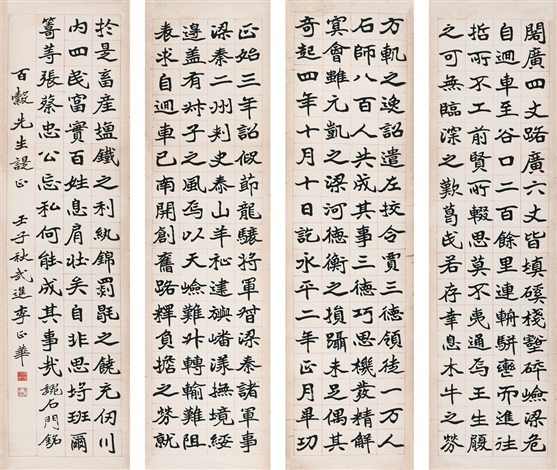 正始三年詔假節龍驤將軍督梁秦諸軍事
梁秦二州刺史泰山羊祉建旟嶓漾撫境綏
邊蓋有叔子之風焉以天嶮難升轉輸難阻
表求自迴車已南開創舊路釋負擔之勞就
方軌之逸詔遣左校令賈三德領徒一万人
石師八百人共成其事三德巧思機發精解
冥會雖元凱之梁河德衡之損躡未足偶其
奇起四年十月十日訖永平二年正月畢功
閣廣四丈路廣六丈皆填磎棧壑砰嶮梁危
自迴車至谷口二百餘里連輈駢轡而進往
哲所不工前賢所輟思莫不夷通焉王生履
之可無臨深之歎葛氏若存幸息木牛之勞
於是畜產鹽鐵之利紈錦罽毼之饒充牣川
内四民富實百姓息肩壯矣自非思埒班爾
籌等張蔡忠公忘私何能成其事哉 魏石門銘
百穀先生諟正
壬子秋武進李正華